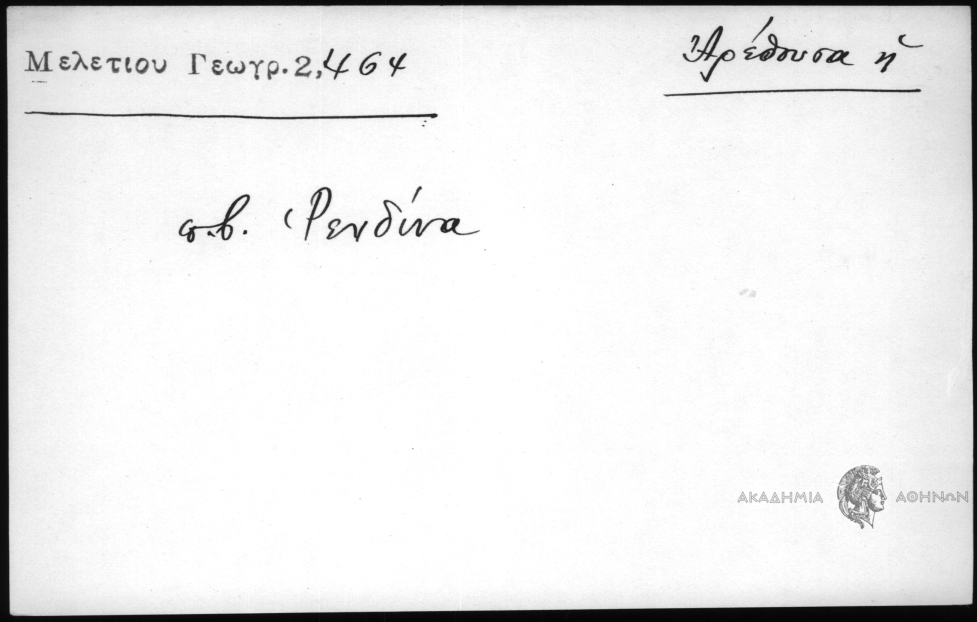 Μελετίου Γεωγρ. 2, 464
Ἀρέθουσα ἡ
π.β. Ῥενδίνα
ΑΚΑΔΗΜΙΑ ΑΘΗΝΩΝ